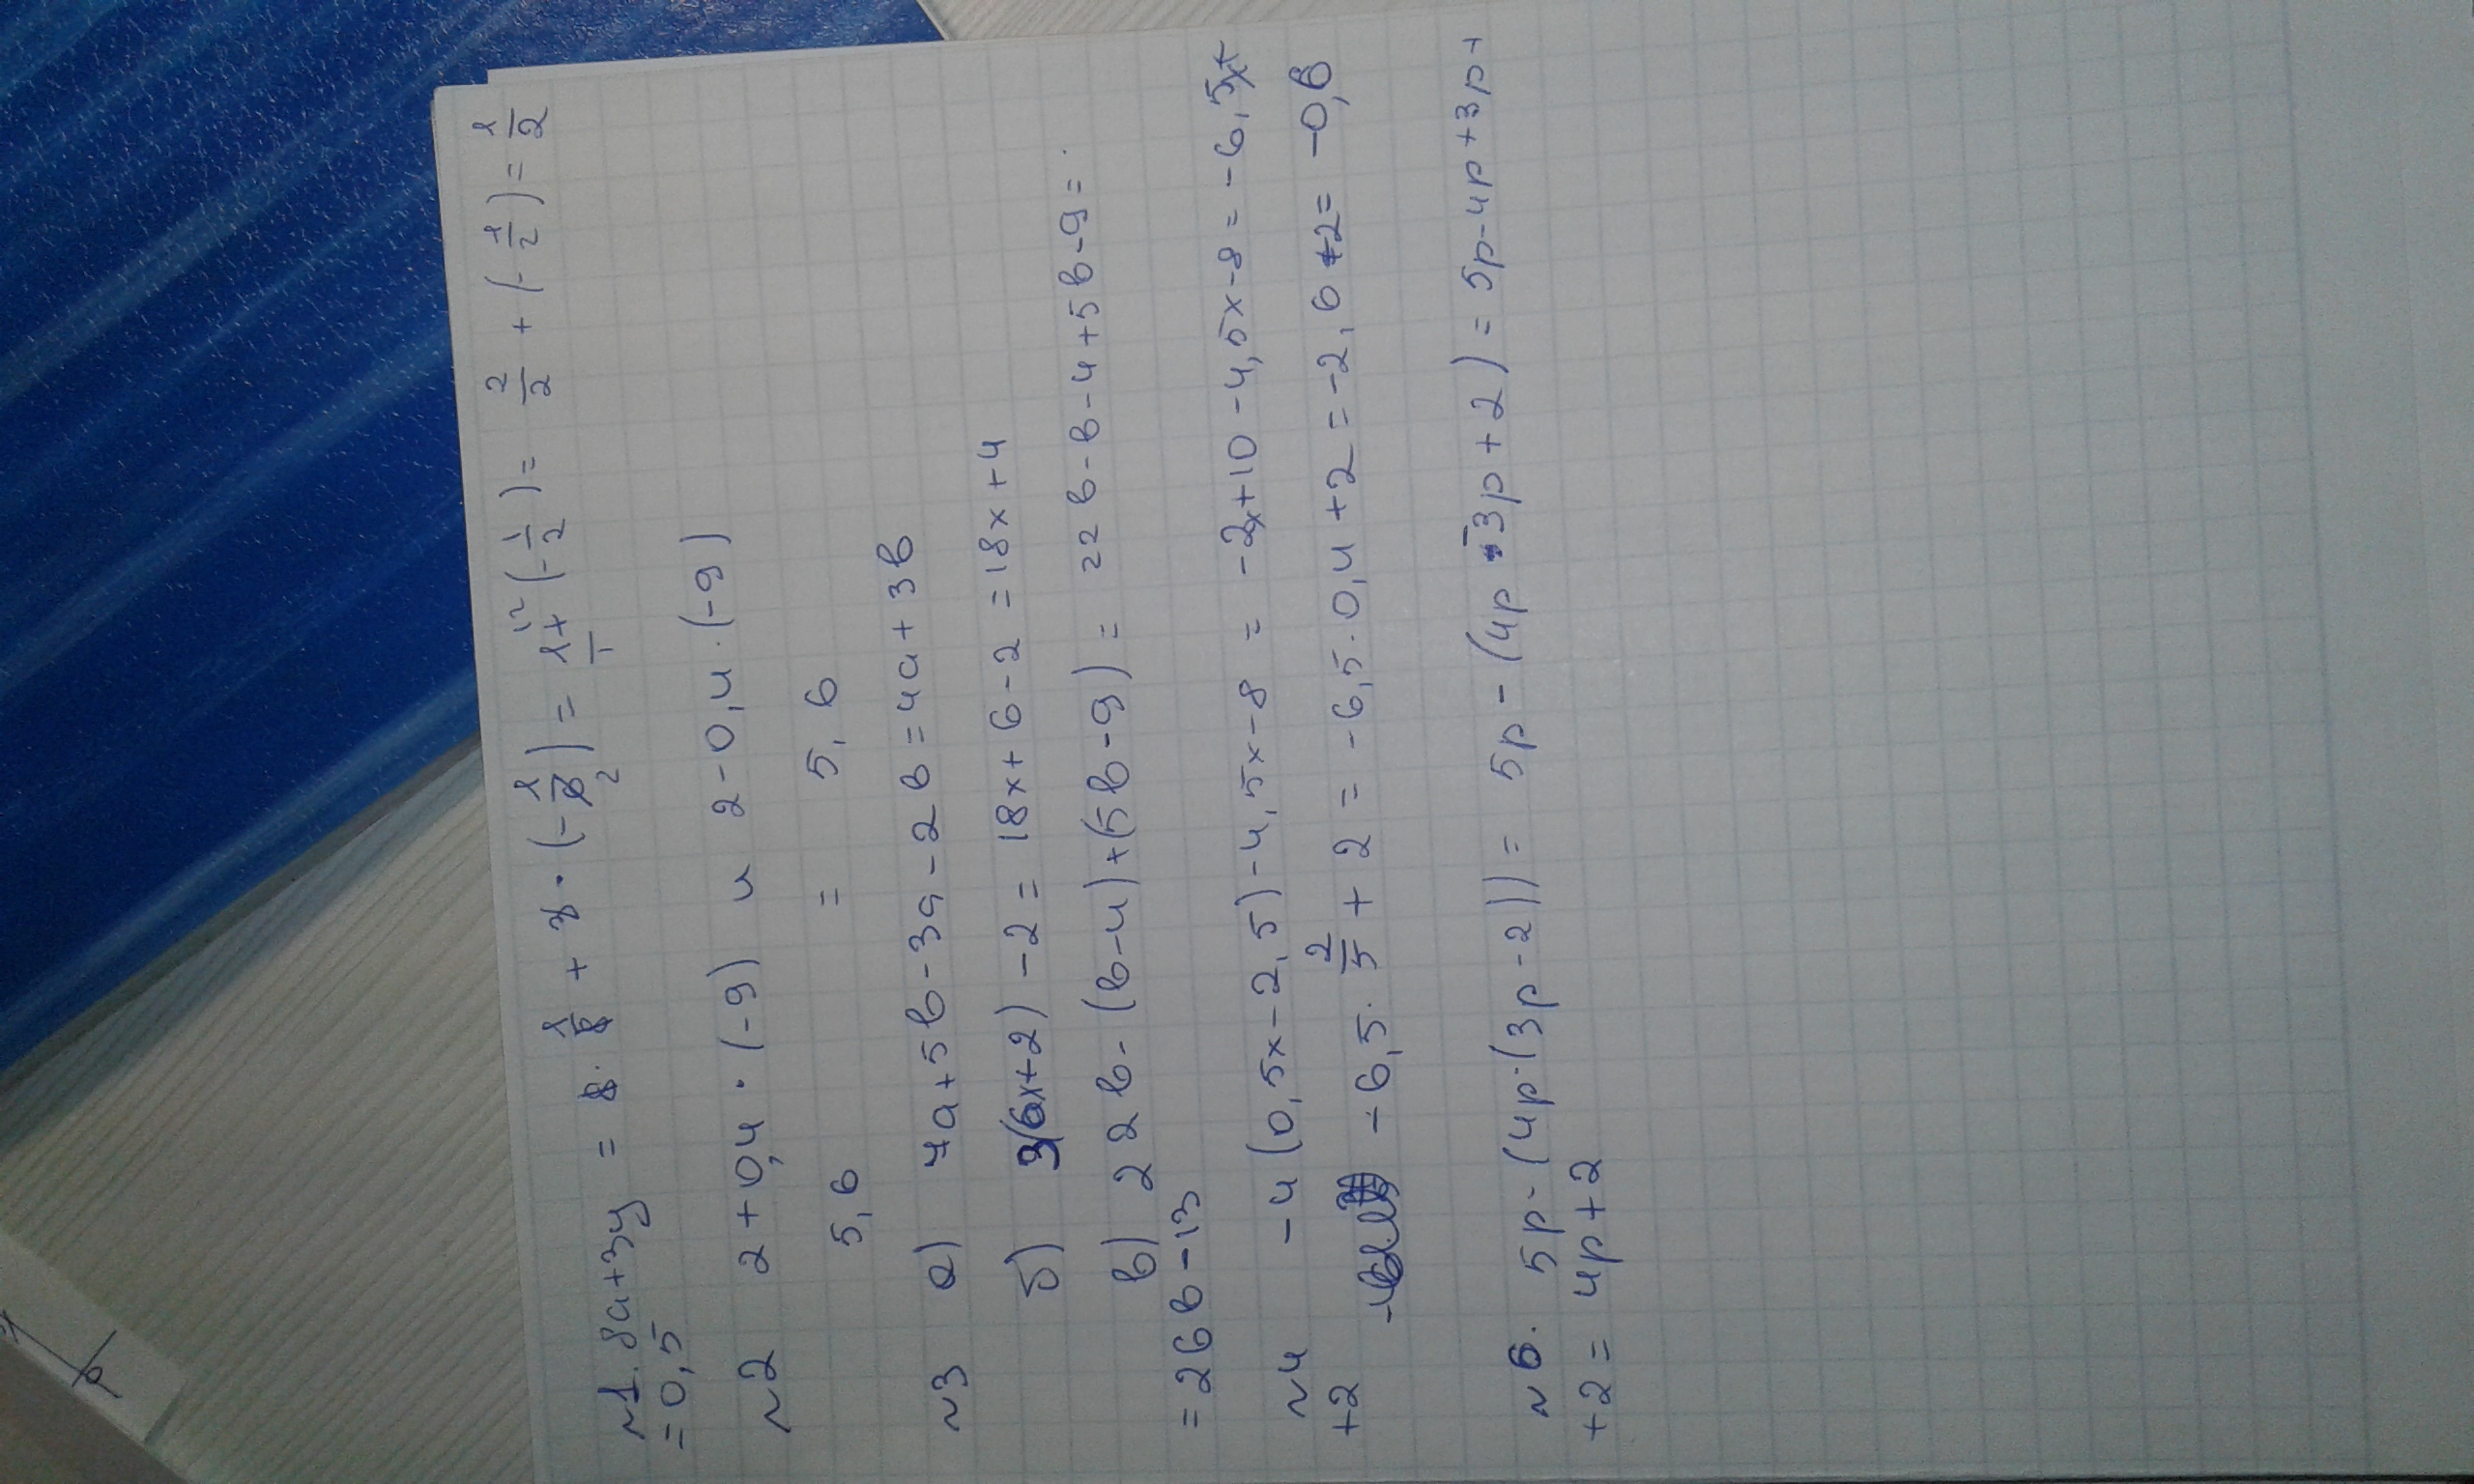 №1. 8a+3y = 8 · 1/8 + 3 · (-1/6) = 1 + (-1/2) = 2/2 + (-1/2) = 1/2
= 0,5
№2 2+0,4 · (-9) и 2-0,4 · (-9)
5,6 = 5,6
№3 а) 7a+5b-3a-2b=4a+3b
б) 3(6x+2) -2 = 18x+6-2 = 18x+4
в) 22b-(b-4)+(5b-9) = 22b-b-4+5b-9=
= 26b-13
№4 -4(0,5x-2,5)-4,5x-8 = -2x+10-4,5x-8 = -6,5x+
+2 -6,5 · 2/5 + 2 = -6,5 · 0,4+2 = -2,6+2 = -0,6
№6. 5p-(4p-(3p-2)) = 5p-(4p-3p+2) = 5p-4p+3p+
+2 = 4p+2